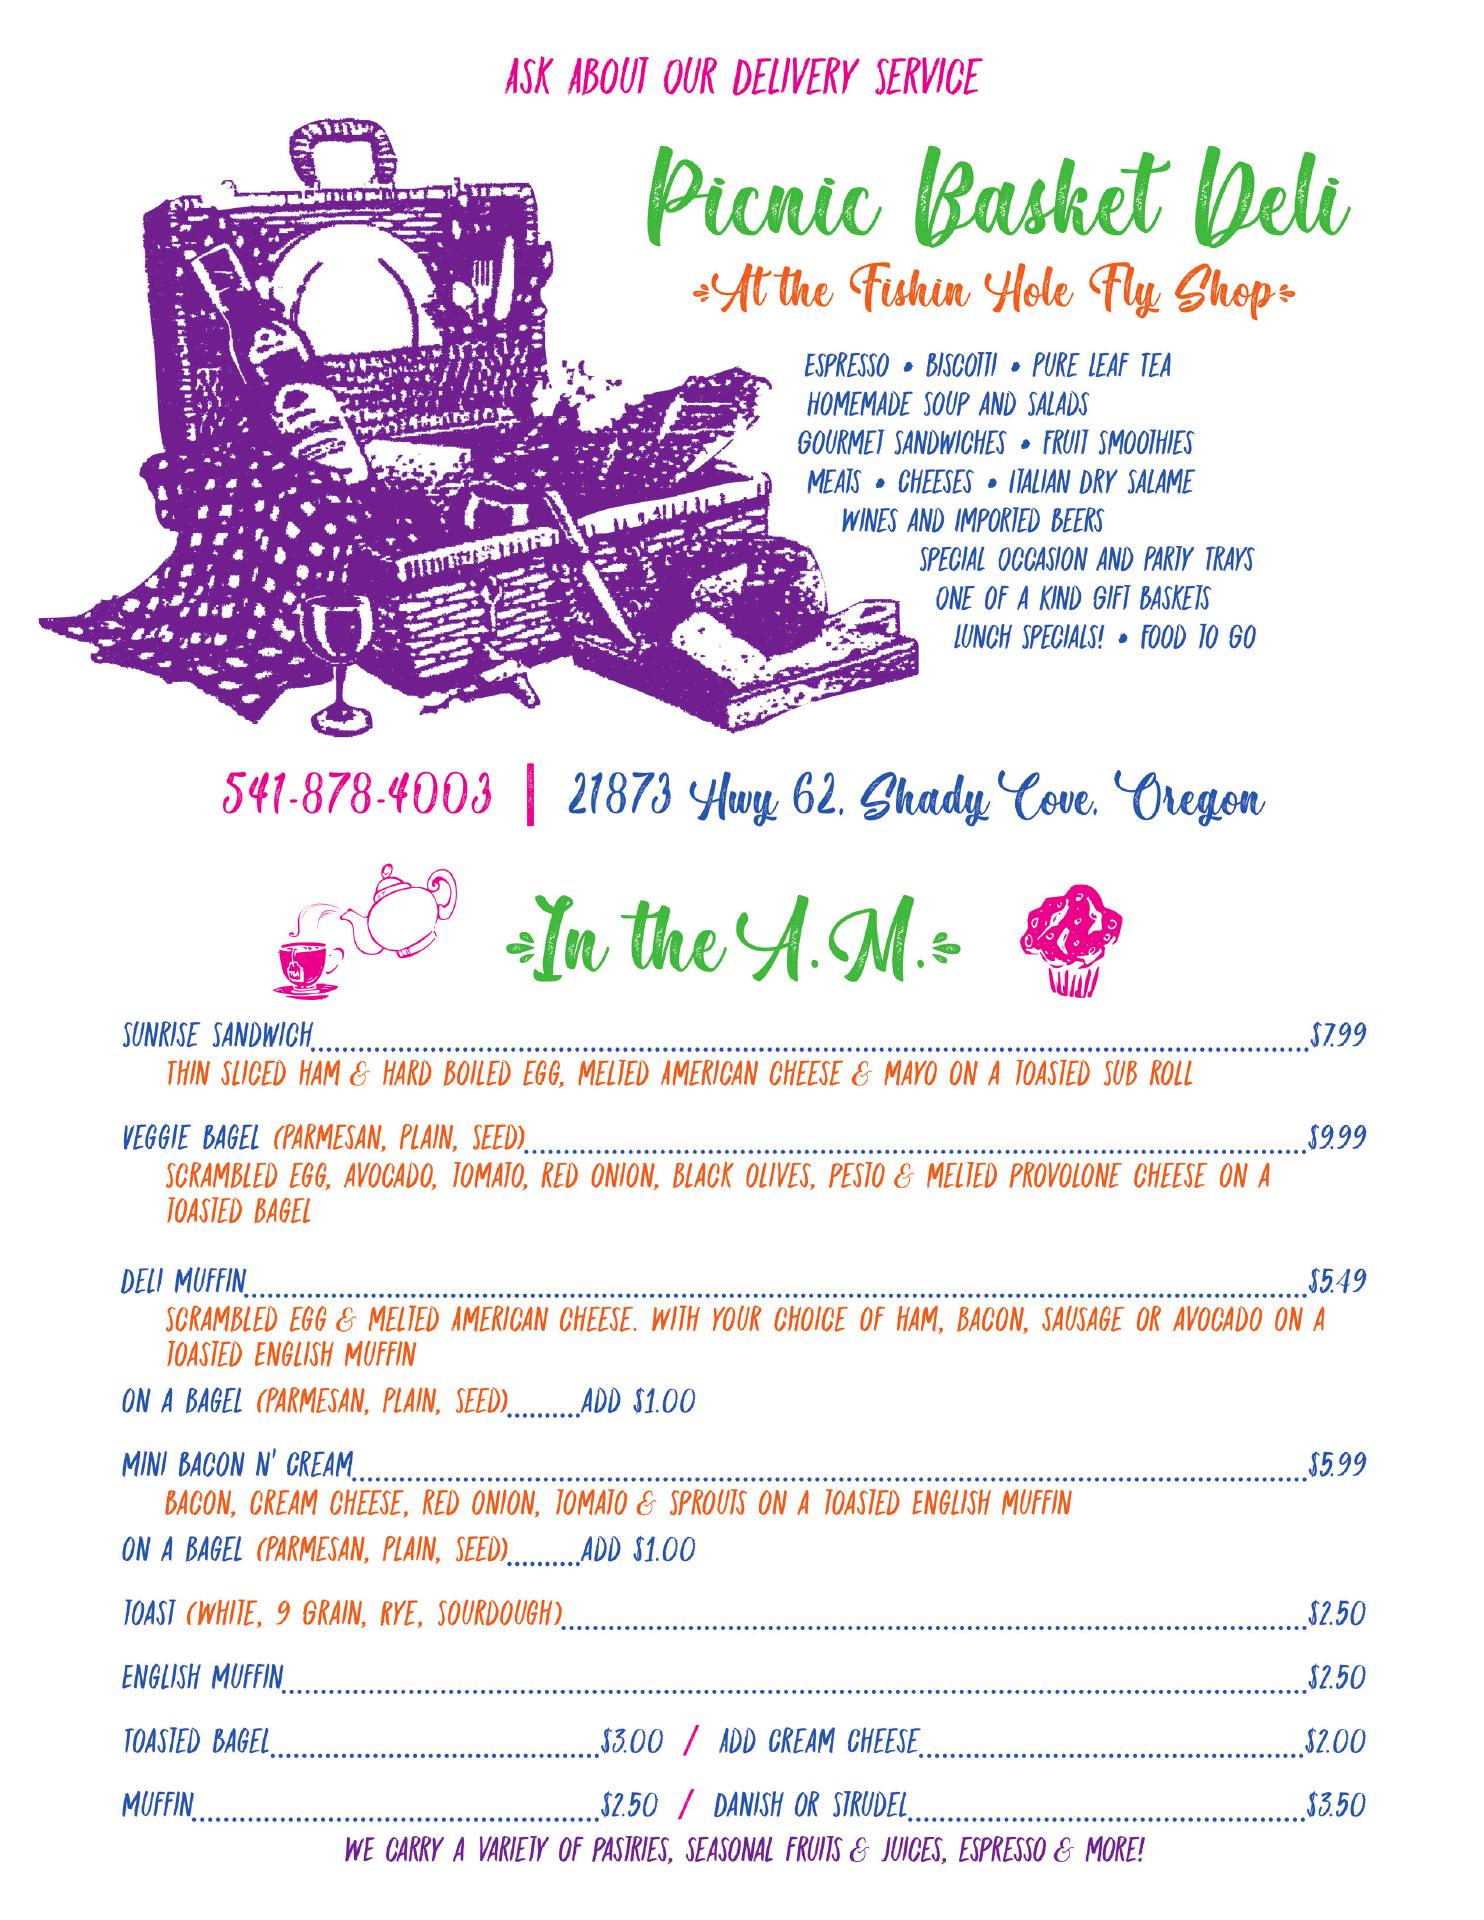 ASK ABOUT OUR DELIVERY SERVICE
Picnic Basket Deli
At the Fishin Hole Fly Shop
ESPRESSO • BISCOTTI • PURE LEAF TEA
HOMEMADE SOUP AND SALADS
GOURMET SANDWICHES • FRUIT SMOOTHIES
MEATS • CHEESES • ITALIAN DRY SALAME
WINES AND IMPORTED BEERS
SPECIAL OCCASION AND PARTY TRAYS
ONE OF A KIND GIFT BASKETS
LUNCH SPECIALS! • FOOD TO GO
541-878-4003 | 21873 Hwy 62, Shady Cove, Oregon
In the A.M.
SUNRISE SANDWICH $7.99
THIN SLICED HAM & HARD BOILED EGG, MELTED AMERICAN CHEESE & MAYO ON A TOASTED SUB ROLL
VEGGIE BAGEL (PARMESAN, PLAIN, SEED) $9.99
SCRAMBLED EGG, AVOCADO, TOMATO, RED ONION, BLACK OLIVES, PESTO & MELTED PROVOLONE CHEESE ON A
TOASTED BAGEL
DELI MUFFIN $5.49
SCRAMBLED EGG & MELTED AMERICAN CHEESE. WITH YOUR CHOICE OF HAM, BACON, SAUSAGE OR AVOCADO ON A
TOASTED ENGLISH MUFFIN
ON A BAGEL (PARMESAN, PLAIN, SEED) ADD $1.00
MINI BACON N' CREAM $5.99
BACON, CREAM CHEESE, RED ONION, TOMATO & SPROUTS ON A TOASTED ENGLISH MUFFIN
ON A BAGEL (PARMESAN, PLAIN, SEED) ADD $1.00
TOAST (WHITE, 9 GRAIN, RYE, SOURDOUGH) $2.50
ENGLISH MUFFIN $2.50
TOASTED BAGEL $3.00 / ADD CREAM CHEESE $2.00
MUFFIN $2.50 / DANISH OR STRUDEL $3.50
WE CARRY A VARIETY OF PASTRIES, SEASONAL FRUITS & JUICES, ESPRESSO & MORE!